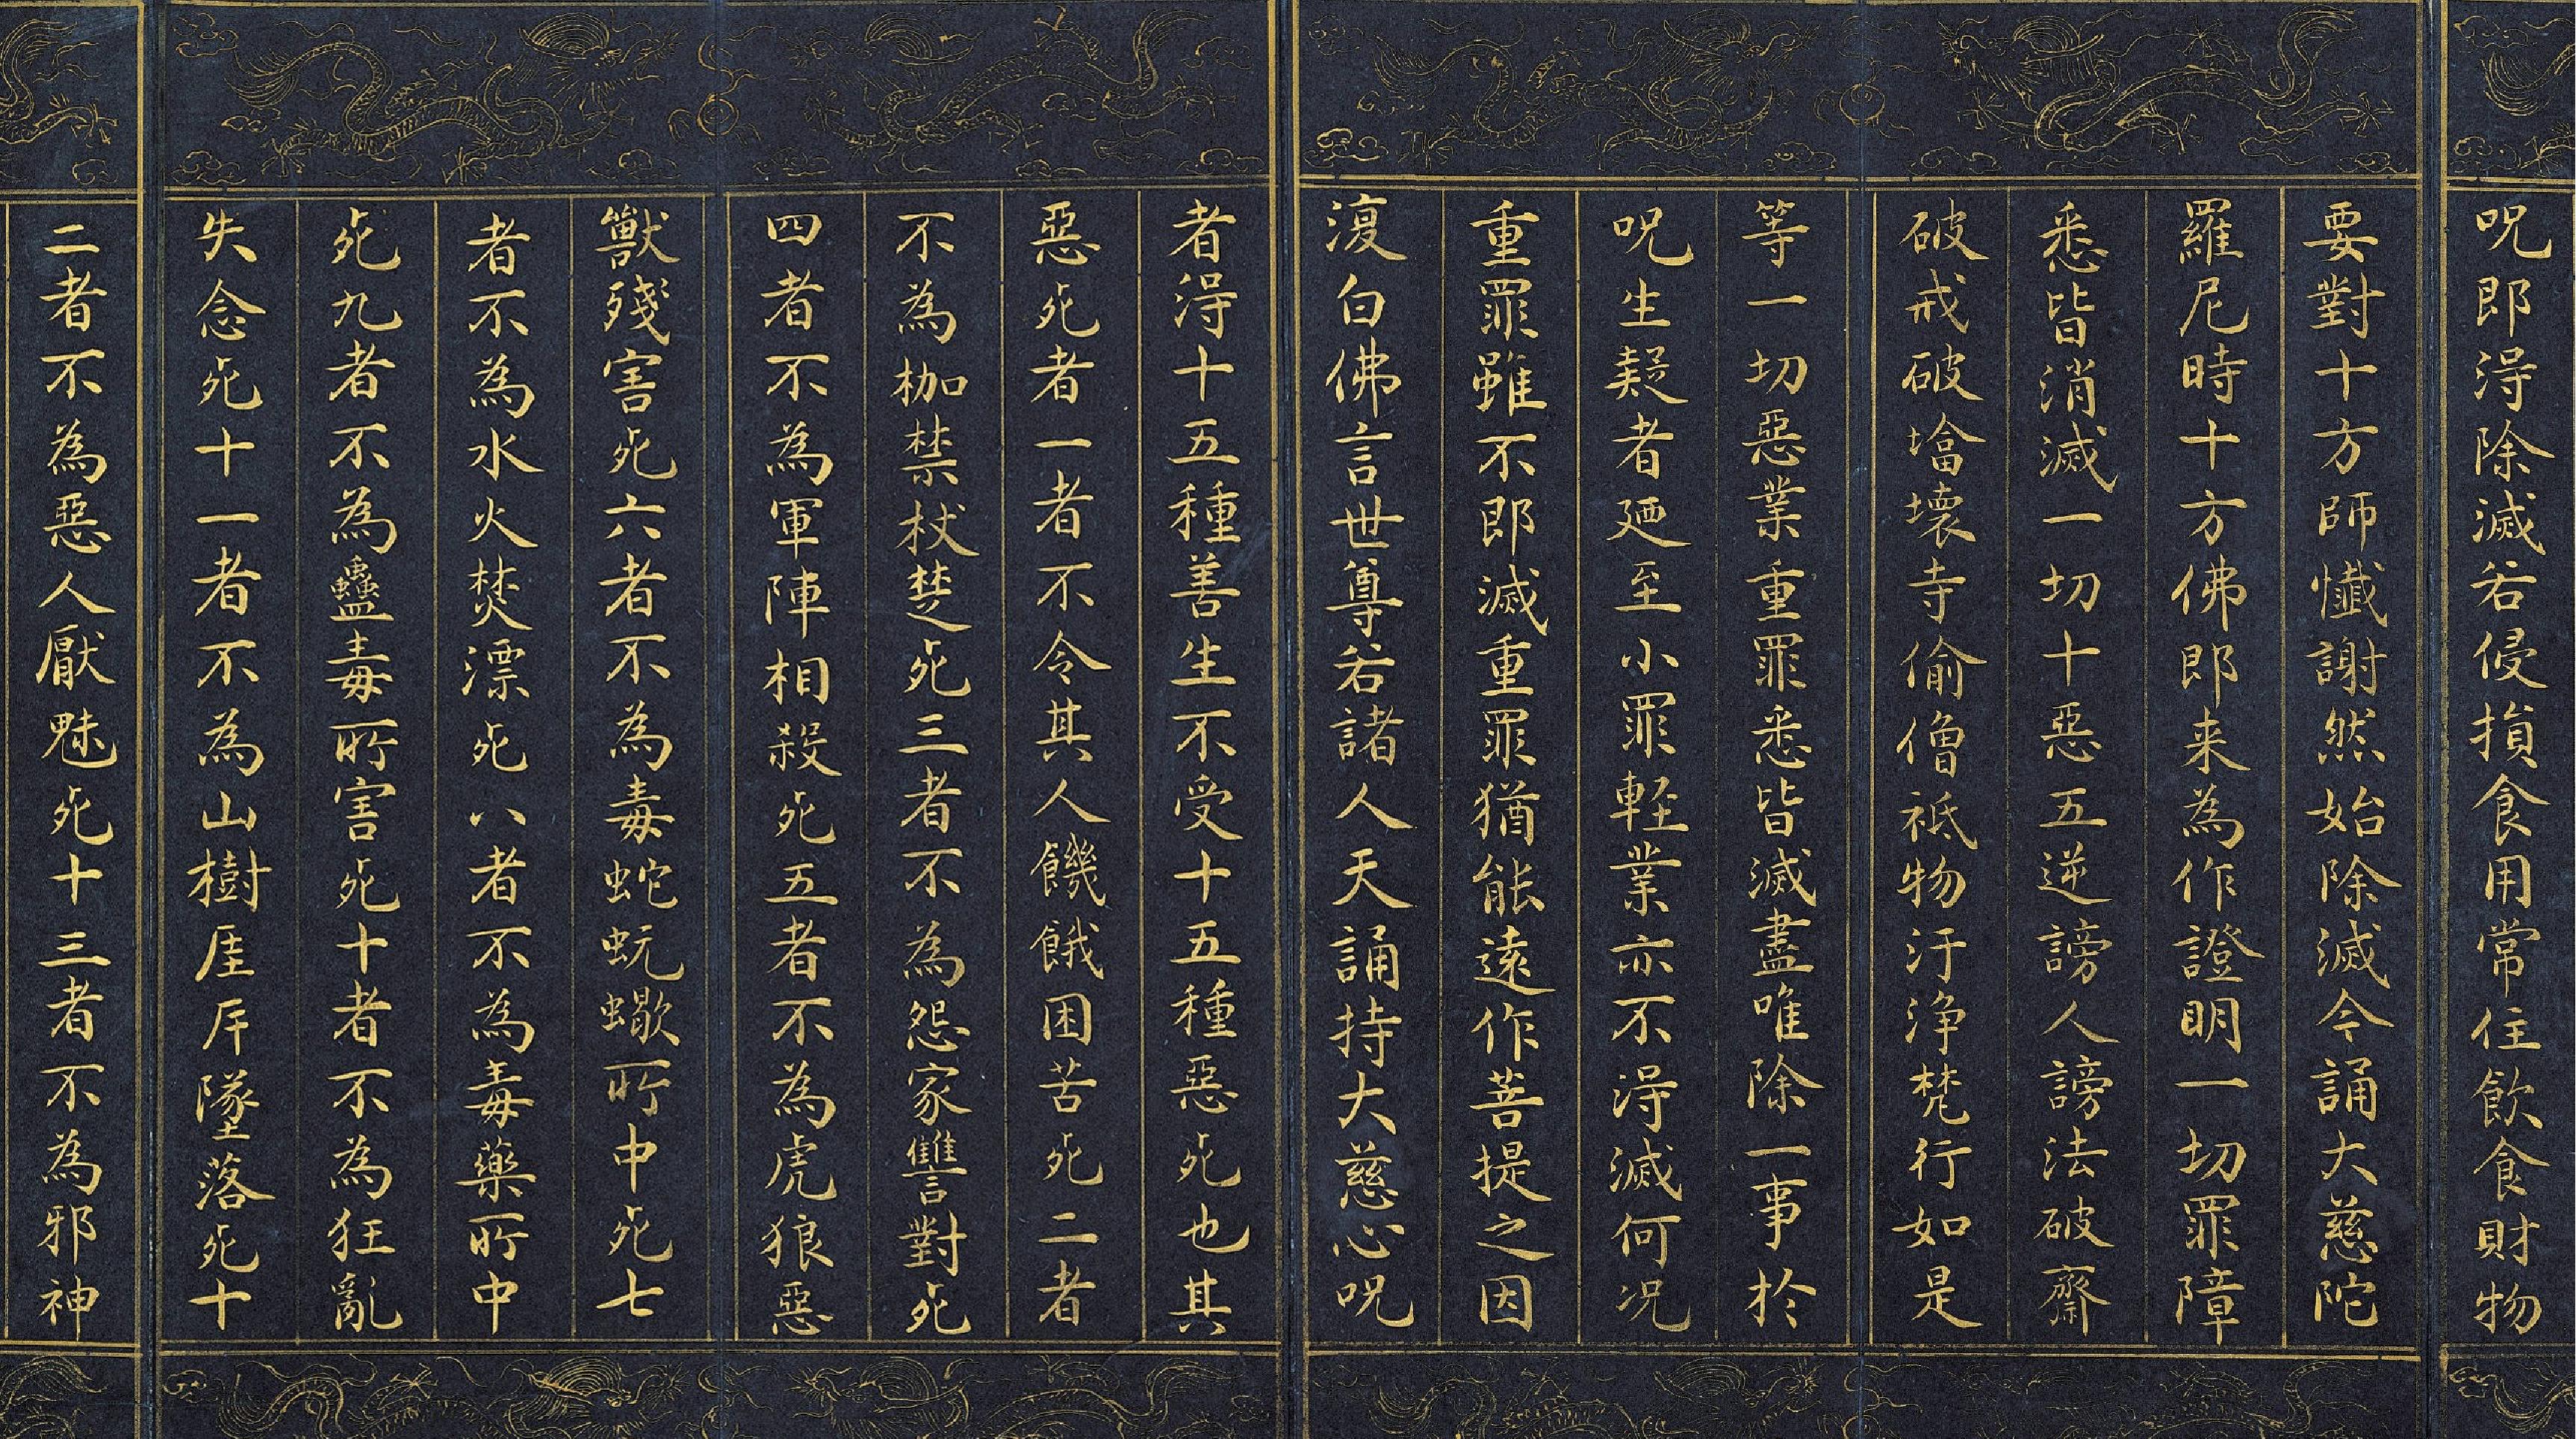 呪即得除滅若侵損食用常住飲食財物
要對十方師懺謝然始除滅今誦大慈陀
羅尼時十方佛即来為作證明一切罪障
悉皆消滅一切十惡五逆謗人謗法破齋
破戒破塔壞寺偷僧祇物汙淨梵行如是
等一切惡業重罪悉皆滅盡唯除一事於
呪生疑者廼至小罪軽業亦不得滅何况
重罪雖不即滅重罪猶能遠作菩提之因
復白佛言世尊若諸人天誦持大慈心呪
者得十五種善生不受十五種惡死也其
惡死者一者不令其人饑餓困苦死二者
不為枷禁杖楚死三者不為怨家讐對死
四者不為軍陣相殺死五者不為虎狼惡
獸殘害死六者不為毒蛇蚖蠍所中死七
者不為水火焚漂死八者不為毒藥所中
死九者不為蠱毒所害死十者不為狂亂
失念死十一者不為山樹厓岸墜落死十
二者不為惡人厭魅死十三者不為邪神